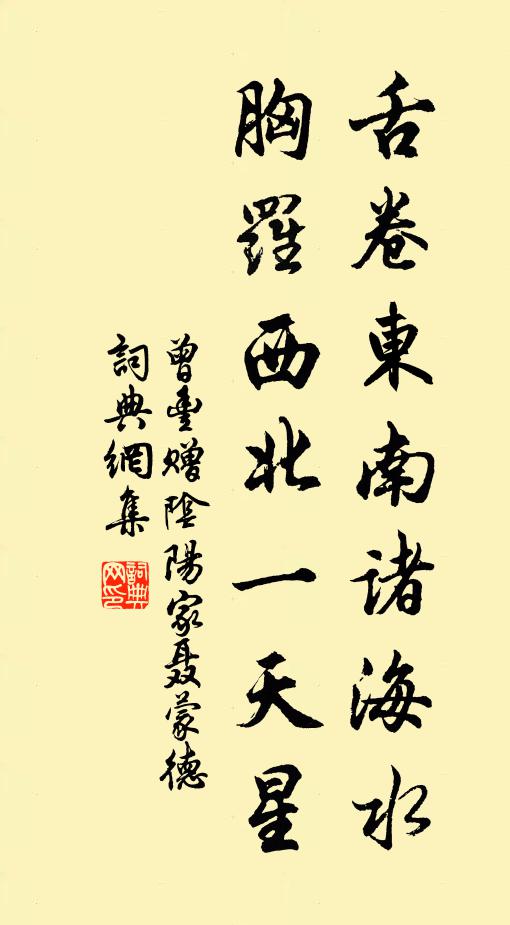 舌卷東南諸海水
胸羅西北一天星
曾豊贈陰陽家聂蒙德
詞典網集
詞典网印